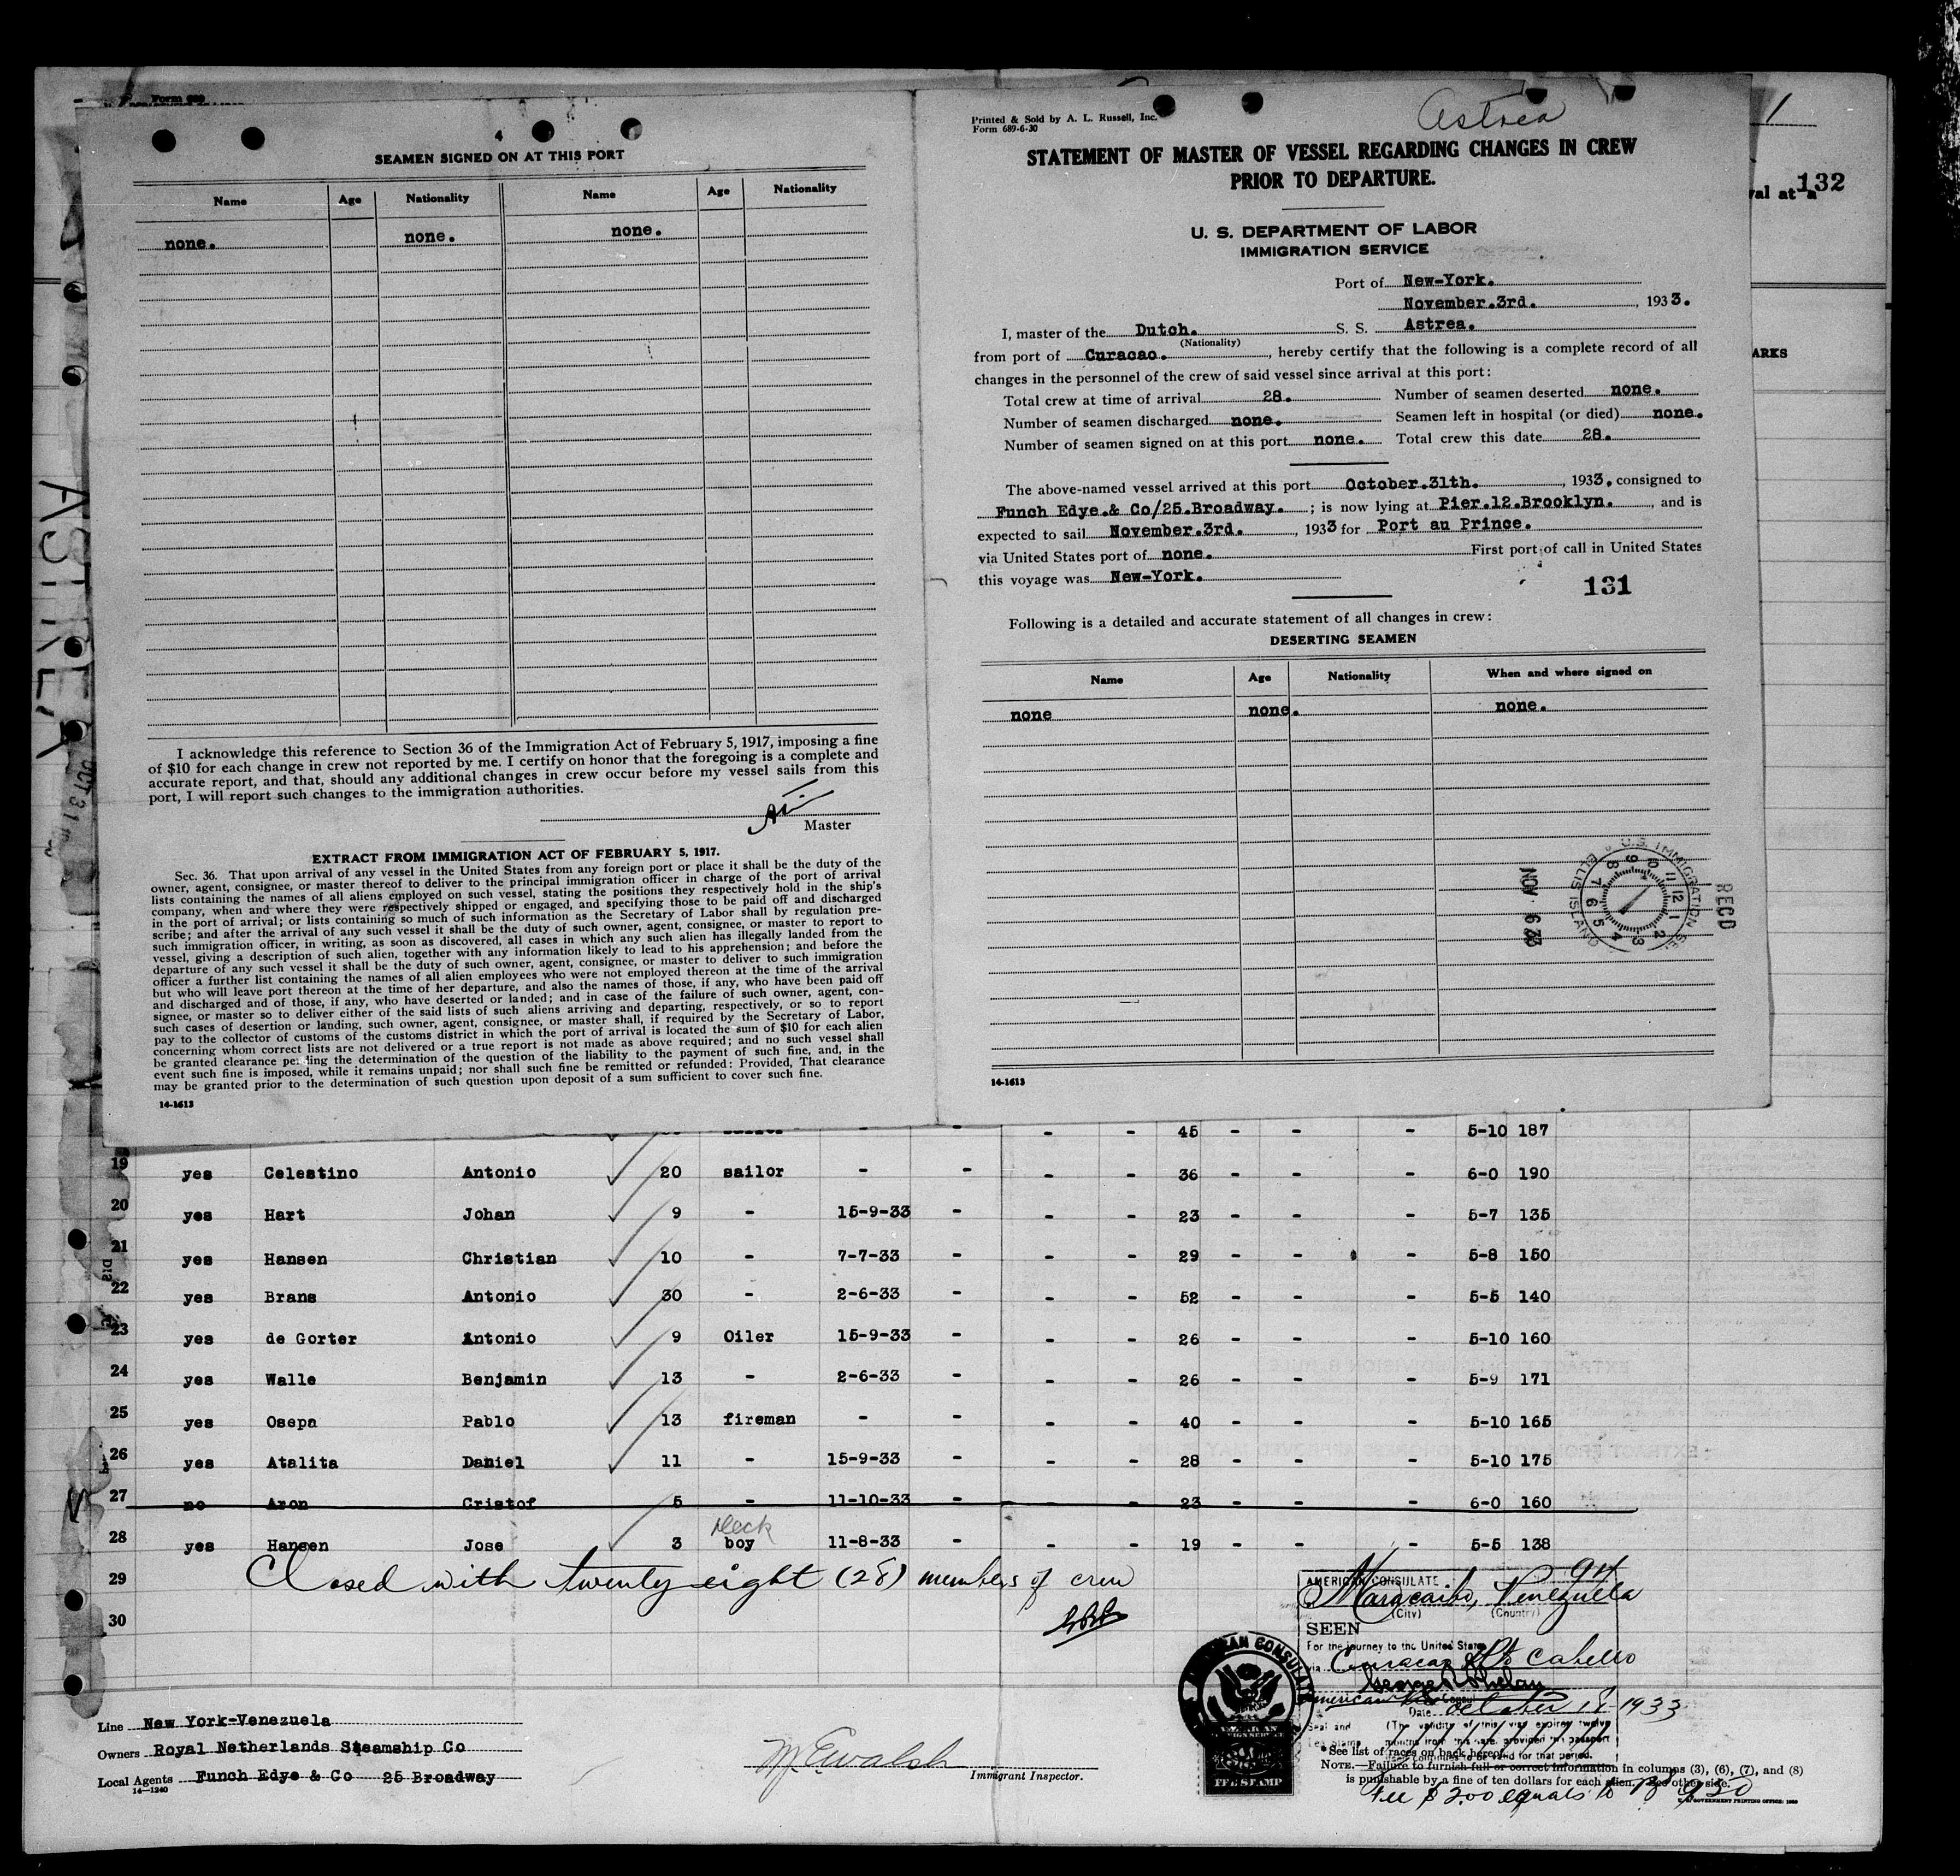 Form 689
4
SEAMEN SIGNED ON AT THIS PORT
Name Age Nationality Name Age Nationality
none. none. none.
I acknowledge this reference to Section 36 of the Immigration Act of February 5, 1917, imposing a fine
of $10 for each change in crew not reported by me. I certify on honor that the foregoing is a complete and
accurate report, and that, should any additional changes in crew occur before my vessel sails from this
port, I will report such changes to the immigration authorities.
Master
EXTRACT FROM IMMIGRATION ACT OF FEBRUARY 5, 1917.
Sec. 36. That upon arrival of any vessel in the United States from any foreign port or place it shall be the duty of the
owner, agent, consignee, or master thereof to deliver to the principal immigration officer in charge of the port of arrival
lists containing the names of all aliens employed on such vessel, stating the positions they respectively hold in the ship's
company, when and where they were respectively shipped or engaged, and specifying those to be paid off and discharged
in the port of arrival; or lists containing so much of such information as the Secretary of Labor shall by regulation pre-
scribe; and after the arrival of any such vessel it shall be the duty of such owner, agent, consignee, or master to report to
such immigration officer, in writing, as soon as discovered, all cases in which any such alien has illegally landed from the
vessel, giving a description of such alien, together with any information likely to lead to his apprehension; and before the
departure of any such vessel it shall be the duty of such owner, agent, consignee, or master to deliver to such immigration
officer a further list containing the names of all alien employees who were not employed thereon at the time of the arrival
but who will leave port thereon at the time of her departure, and also the names of those, if any, who have been paid off
and discharged and of those, if any, who have deserted or landed; and in case of the failure of such owner, agent, con-
signee, or master so to deliver either of the said lists of such aliens arriving and departing, respectively, or so to report
such cases of desertion or landing, such owner, agent, consignee, or master shall, if required by the Secretary of Labor,
pay to the collector of customs of the customs district in which the port of arrival is located the sum of $10 for each alien
concerning whom correct lists are not delivered or a true report is not made as above required; and no such vessel shall
be granted clearance pending the determination of the question of the liability to the payment of such fine, and, in the
event such fine is imposed, while it remains unpaid; nor shall such fine be remitted or refunded: Provided, That clearance
may be granted prior to the determination of such question upon deposit of a sum sufficient to cover such fine.
14-1613
Printed & Sold by A. L. Russell, Inc.
Form 689-6-30
Astrea
STATEMENT OF MASTER OF VESSEL REGARDING CHANGES IN CREW
PRIOR TO DEPARTURE.
U. S. DEPARTMENT OF LABOR
IMMIGRATION SERVICE
Port of New-York.
November.3rd. , 1933.
I, master of the Dutch. S. S. Astrea.
(Nationality)
from port of Curacao. , hereby certify that the following is a complete record of all
changes in the personnel of the crew of said vessel since arrival at this port:
Total crew at time of arrival 28. Number of seamen deserted none.
Number of seamen discharged none. Seamen left in hospital (or died) none.
Number of seamen signed on at this port none. Total crew this date 28.
The above-named vessel arrived at this port October.31th. , 1933, consigned to
Funch Edye.& Co/25.Broadway. ; is now lying at Pier.12.Brooklyn. , and is
expected to sail November.3rd. , 1933 for Port au Prince.
via United States port of none. First port of call in United States
this voyage was New-York.
131
Following is a detailed and accurate statement of all changes in crew:
DESERTING SEAMEN
Name Age Nationality When and where signed on
none none. none.
RECD
U.S. IMMIGRATION SE
ELLIS ISLAND
NOV 6 33
14-1613
1
val at a 132
ARKS
ASTREA
OCT 31
DIS
- - - - 45 - - - 5-10 187
19 yes Celestino Antonio 20 sailor - - - - 36 - - - 6-0 190
20 yes Hart Johan 9 - 15-9-33 - - - 23 - - - 5-7 135
21 yes Hansen Christian 10 - 7-7-33 - - - 29 - - - 5-8 150
22 yes Brans Antonio 30 - 2-6-33 - - - 52 - - - 5-5 140
23 yes de Gorter Antonio 9 Oiler 15-9-33 - - - 26 - - - 5-10 160
24 yes Walle Benjamin 13 - 2-6-33 - - - 26 - - - 5-9 171
25 yes Osepa Pablo 13 fireman - - - - 40 - - - 5-10 165
26 yes Atalita Daniel 11 - 15-9-33 - - - 28 - - - 5-10 175
27 no Aron Cristof 5 - 11-10-33 - - - 23 - - - 6-0 160
28 yes Hansen Jose 3 Deck boy 11-8-33 - - - 19 - - - 5-5 138
29 Closed with twenty eight (28) members of crew
30
Line New York-Venezuela
Owners Royal Netherlands Steamship Co
Local Agents Funch Edye & Co 25 Broadway
14-1240
Immigrant Inspector.
AMERICAN CONSULATE
94
Maracaibo, Venezuela
(City) (Country)
SEEN
For the journey to the United States
via Curacao & Pto Cabello
George R Phelan
American Vice Consul
Date October 18-1933
Seal and
(The validity of this visa expires twelve
months from this date, provided the passport
continues to be valid for that period.
AMERICAN CONSULATE
FEE STAMP
*See list of races on back hereof.
NOTE.—Failure to furnish full or correct information in columns (3), (6), (7), and (8)
is punishable by a fine of ten dollars for each alien. See other side.
Fee $ 2.00 equals to
U. S. GOVERNMENT PRINTING OFFICE